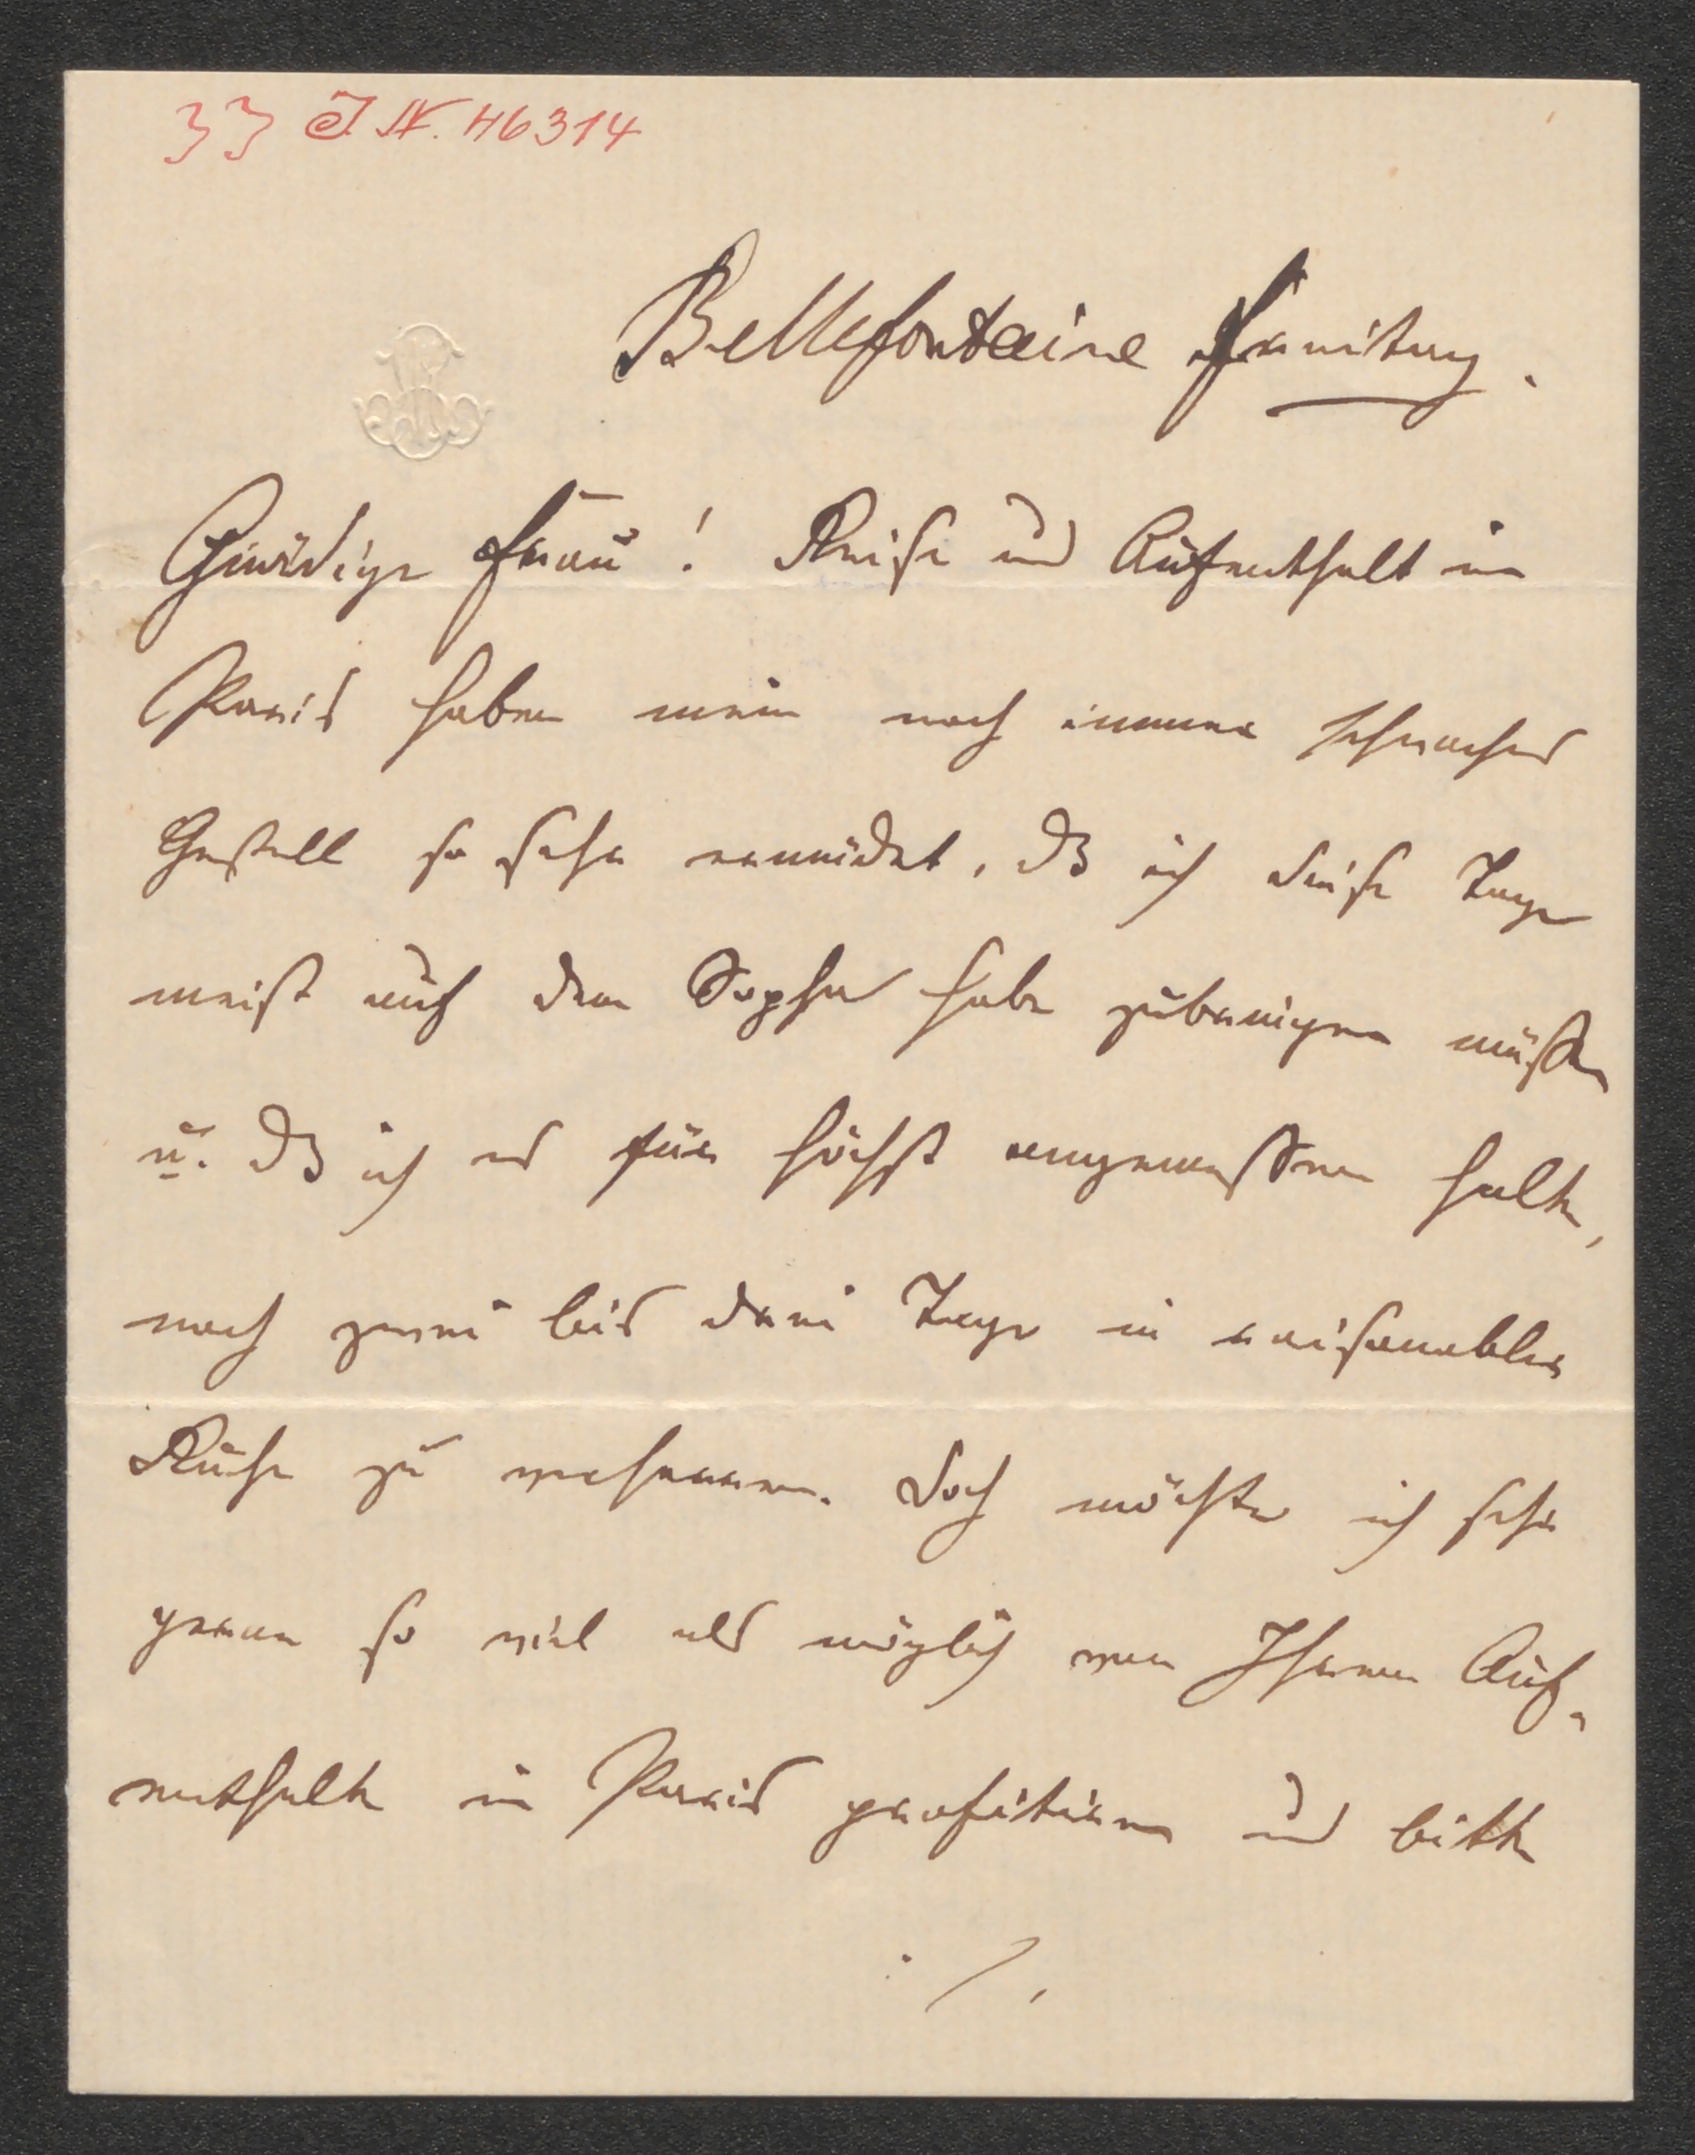 33 J. N. 46314
Bellefontaine Freitag.
Gnädige Frau! Reise und Aufenthalt in
Paris haben mein noch immer schwaches
Gestell so sehr ermüdet, dß ich diese Tage
meist auf dem Sopha habe zubringen müßen
u. dß ich es für höchst angemessen halte,
noch zwei bis drei Tage in raisonabler
Ruhe zu verharren. Doch möchte ich sehr
gerne so viel als möglich von Ihrem Auf-
enthalte in Paris profitiren und bitte
./.